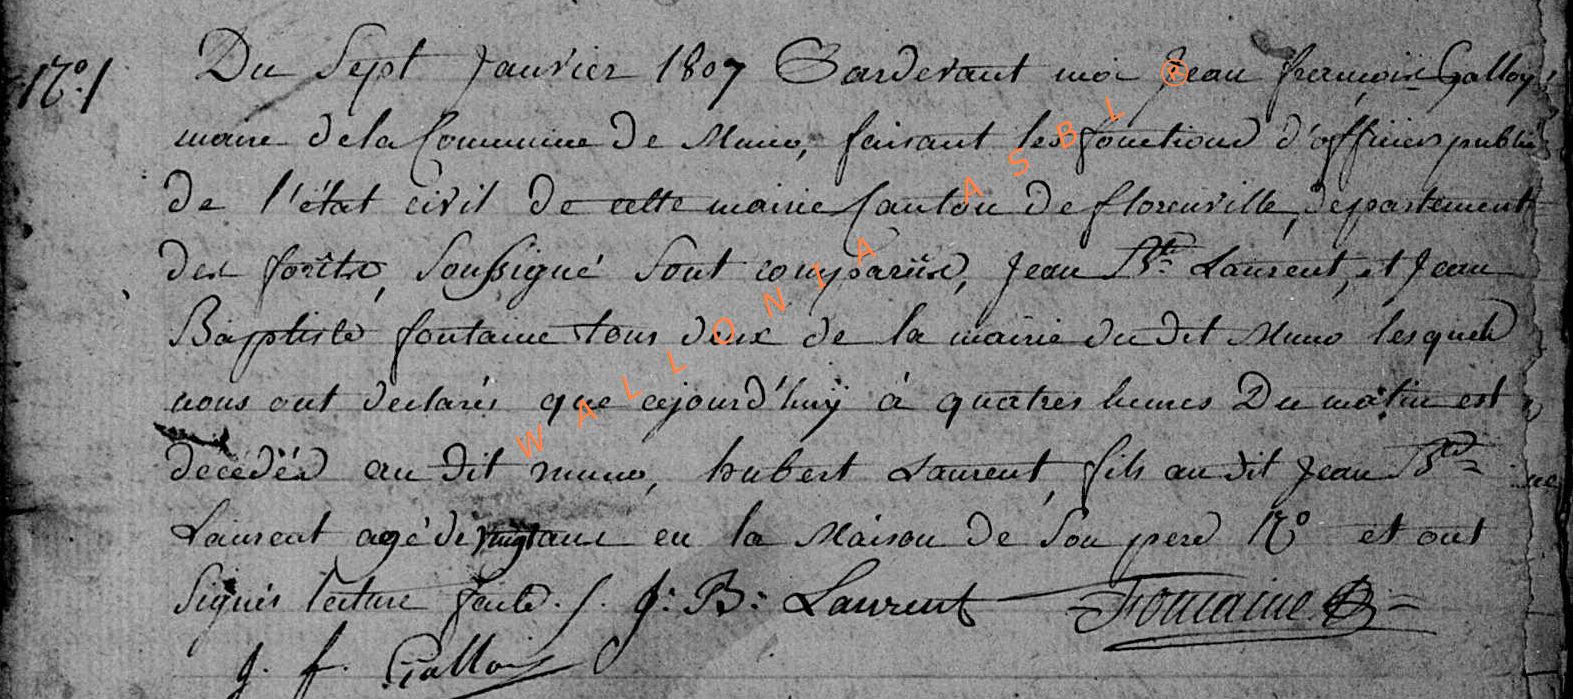 N.° 1 Du Sept Janvier 1807 Pardevant moi Jean françois Galloy,
maire de la Commune de Muno, faisant les fonctions d'officier public
de l'état civil de cette mairie Canton de florenville, departement
des forêts, Soussigné Sont comparüs, Jean Bte Laurent, et Jean
Baptiste fontaine tous deux de la mairie du dit Muno lesquels
nous ont declarés que cejourd'huÿ à quatres heures Du matin est
décédés au dit muno, hubert Laurent, fils au dit Jean Bte
Laurent agé de vingt ans en la Maison de Son pere N° et ont
Signés lecture faite. J: B: Laurent Fontaine
J. f. Galloi
WALLONIA ASBL ®